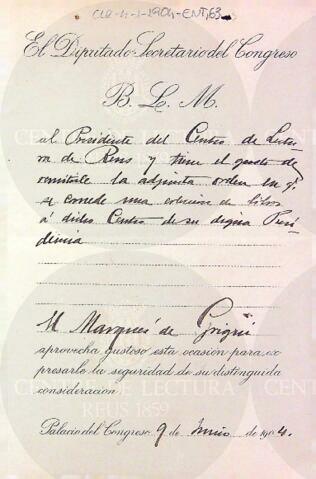 El Diputado-Secretario del Congreso
B. L. M.
al Presidente del Centro de Lectu-
ra de Reus y tiene el gusto de
remitirle la adjunta orden en q.
se concede una colección de libros
á dicho Centro de su digna Presi
dencia
El Marqués de
aprovecha gustoso esta ocasión para ex
presarle la seguridad de su distinguida
consideración.
Palacio del Congreso 9 de Junio de 1904.
CENTRE DE LECTURA
REUS 1859